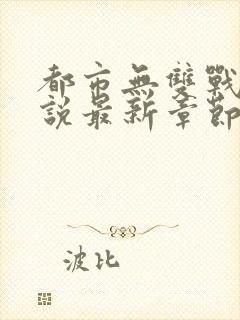 都市無雙戰
說最新章節
波比